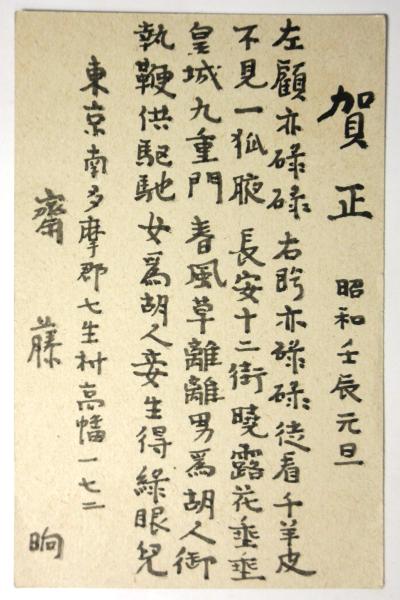 賀正
昭和壬辰元旦
左顧亦碌碌 右眄亦碌碌 徒看千羊皮
不見一狐腋 長安十二街 曉露花垂垂
皇城九重門 春風草離離 男爲胡人御
執鞭供駆馳 女爲胡人妾 生得綠眼兒
東京南多摩郡七生村高幡一七二
齋藤 晌